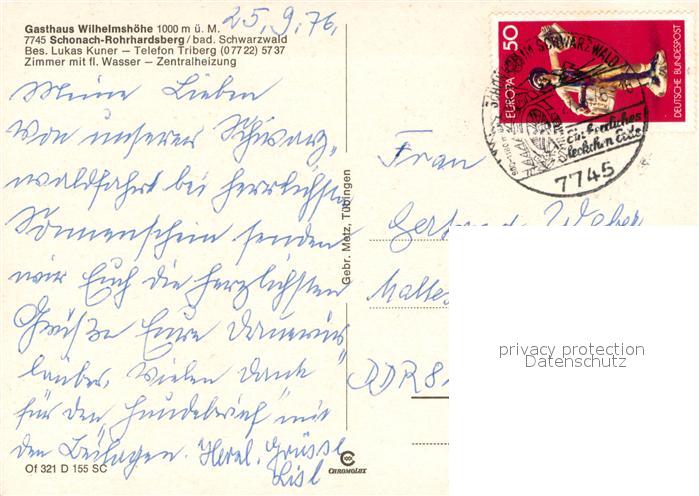 25.9.76.
Gasthaus Wilhelmshöhe 1000 m ü. M.
7745 Schonach-Rohrhardsberg / bad. Schwarzwald
Bes. Lukas Kuner – Telefon Triberg (0 77 22) 57 37
Zimmer mit fl. Wasser – Zentralheizung
Meine Lieben
Von unserer Schwarz„
waldfahrt bei herrlichstem
Sonnenschein senden
wir Euch die herzlichsten
Grüße Eure Dauerur„
lauber. Vielen Dank
für den „Hundebrief" mit
den Beilagen. Herzl. Grüsse
Lisl
Of 321 D 155 SC
Gebr. Metz, Tübingen
CHROMOLUX
50
EUROPA
DEUTSCHE BUNDESPOST
SCHONACH IM SCHWARZWALD
Ein herrliches
Fleckchen Erde
7745
Frau
Gertraud Weber
DDR 8
privacy protection
Datenschutz